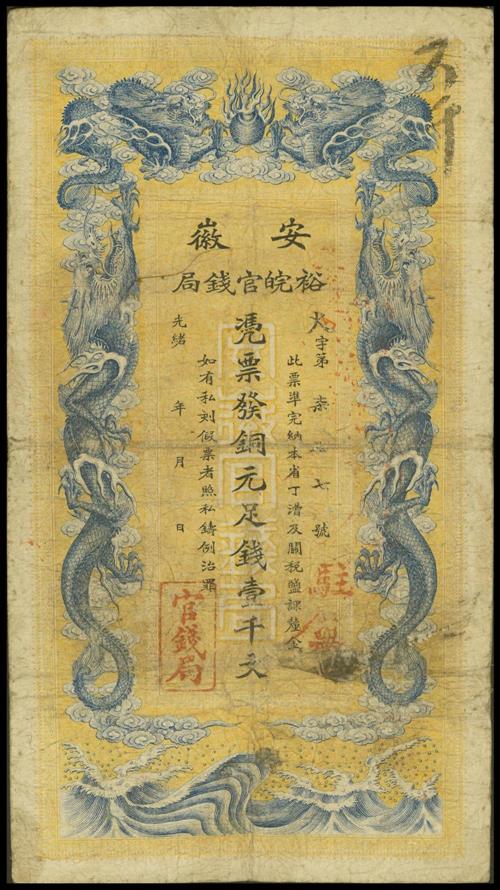 安徽
裕皖官錢局
字第柒 七號
此票準完納本省丁漕及關稅鹽課釐金
憑票發銅元足錢壹千文
如有私刻假票者照私鑄例治罪
光緒 年 月 日
官錢局
駐